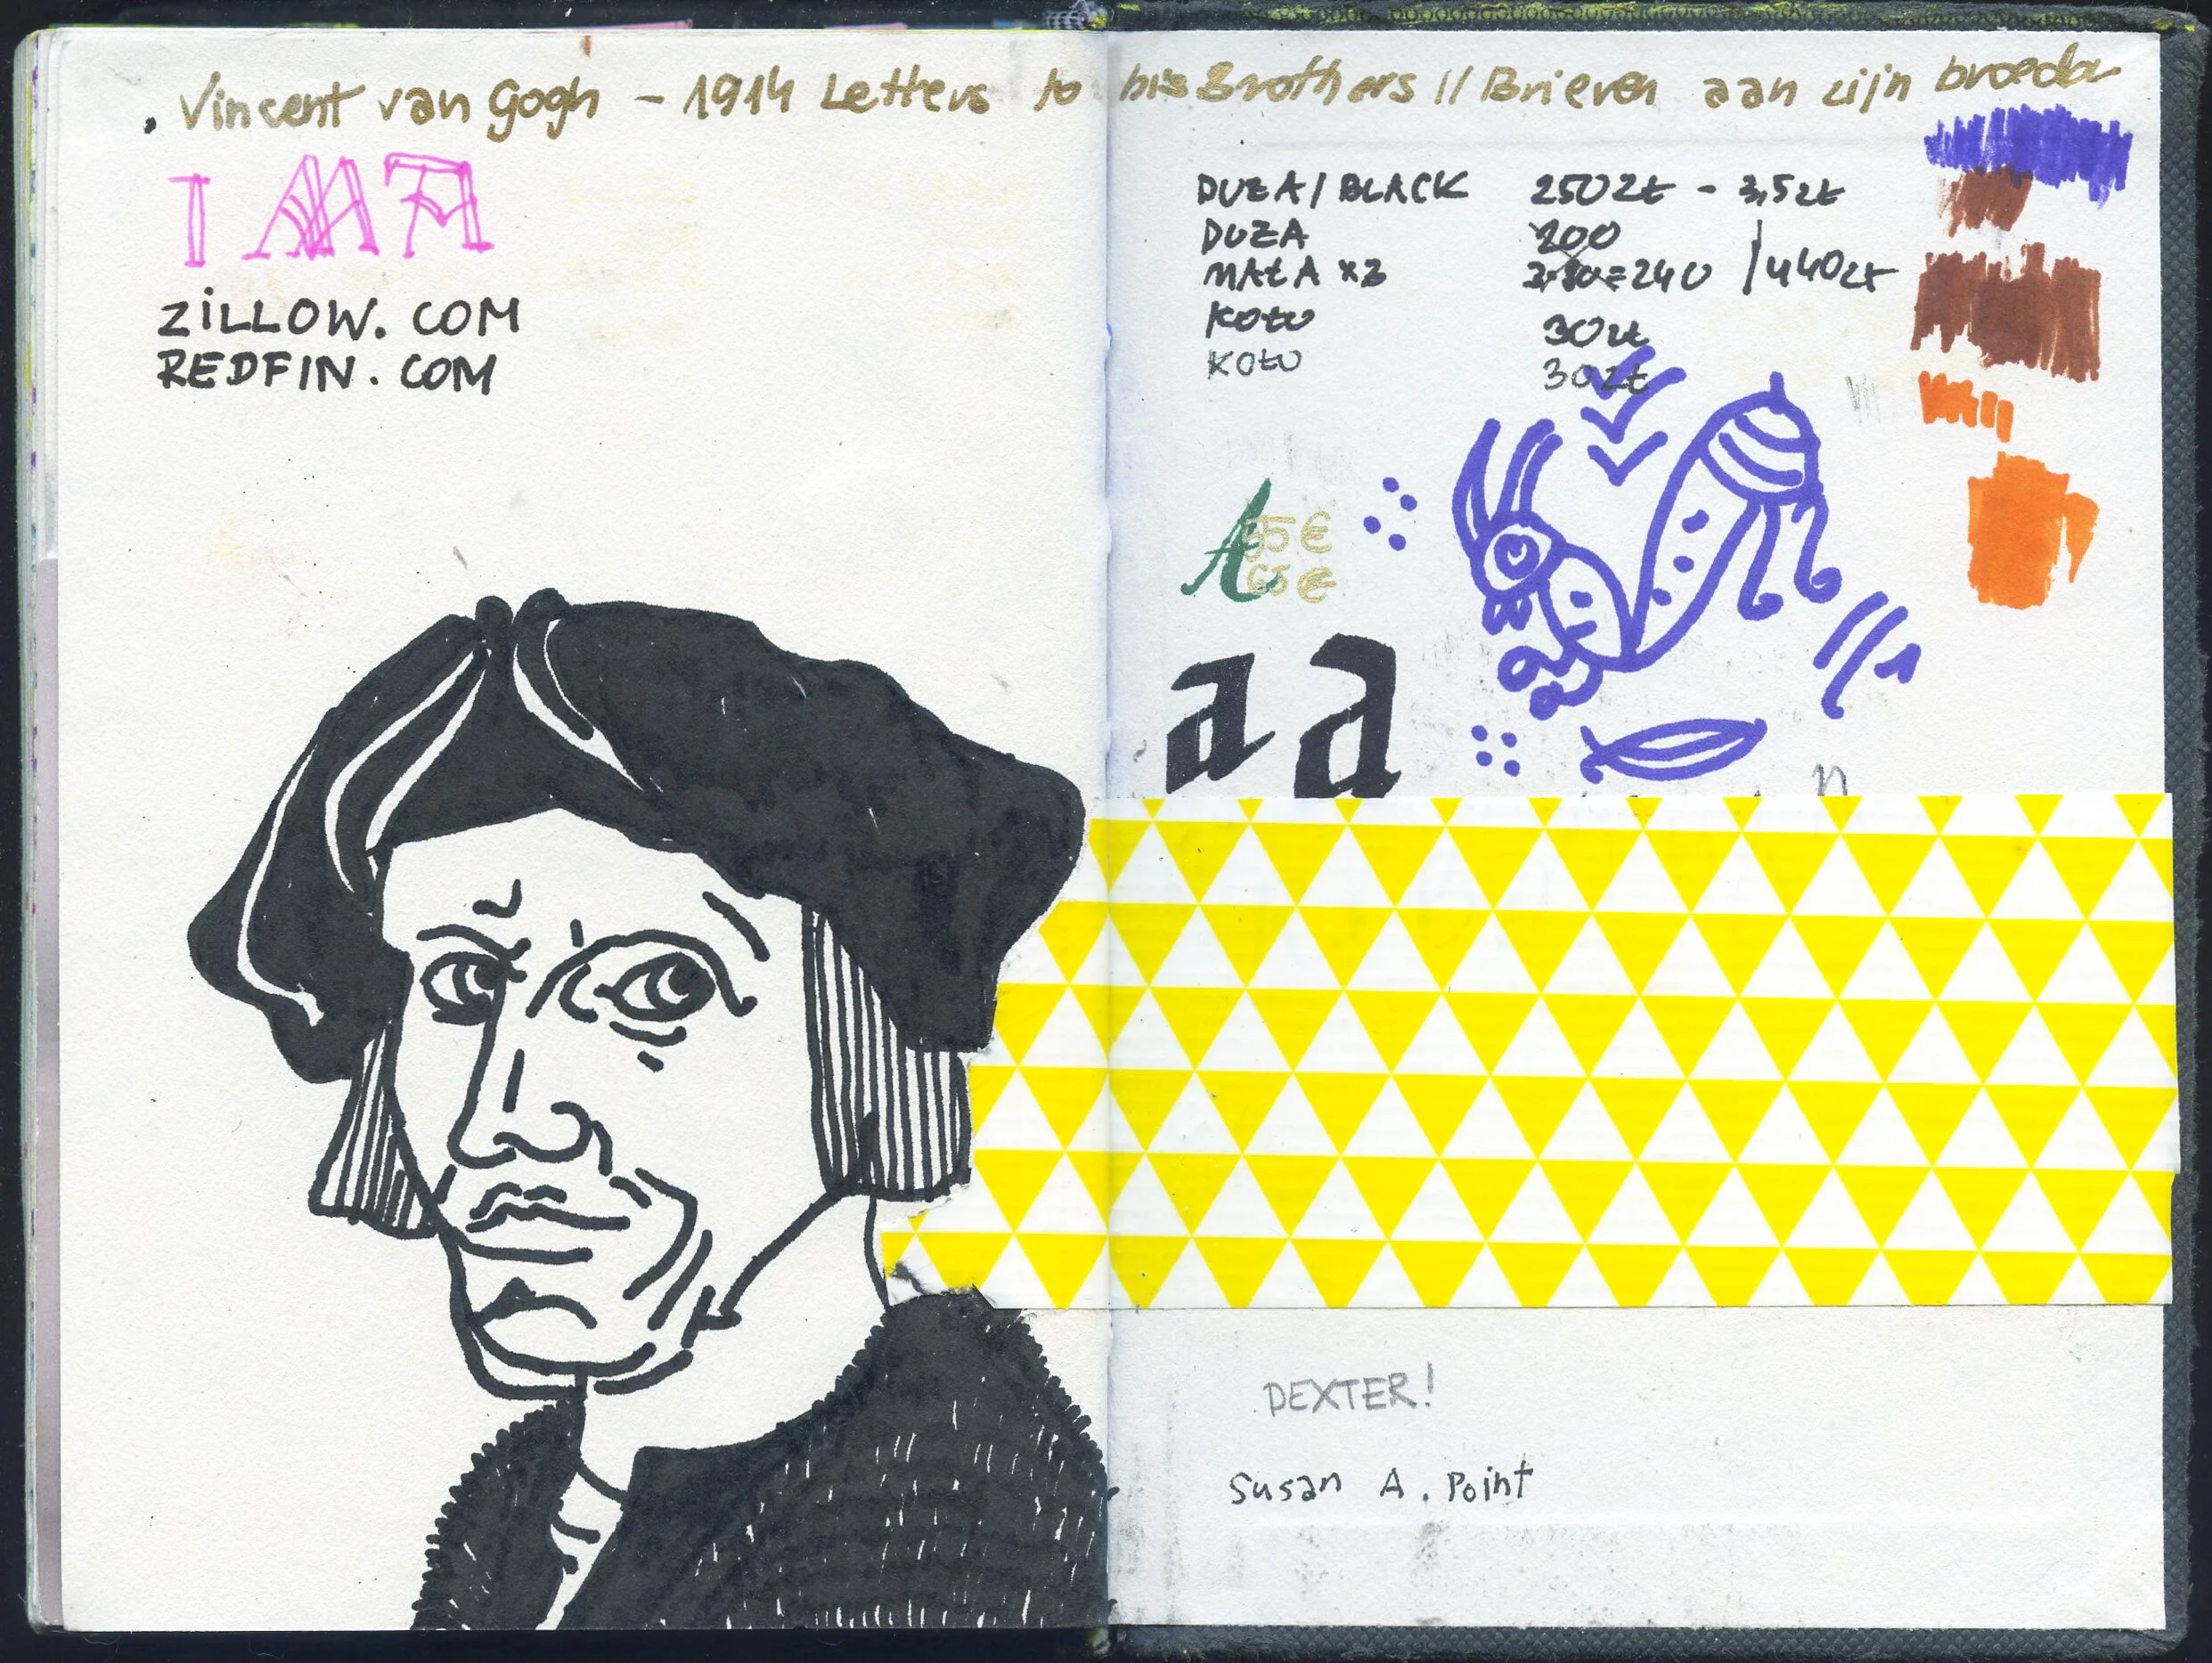 Vincent van Gogh - 1914 Letters to his Brothers // Brieven aan zijn broeder
ZiLLOW. COM
REDFIN. COM
DUŻA / BLACK 250 Zł - 3,5 zł
DUŻA 200
MAŁA x3 3·80=240 / 440zł
KOŁO 30 zł
KOŁO 30 zł
A 35 €
65 €
a a
DEXTER!
Susan A. Point